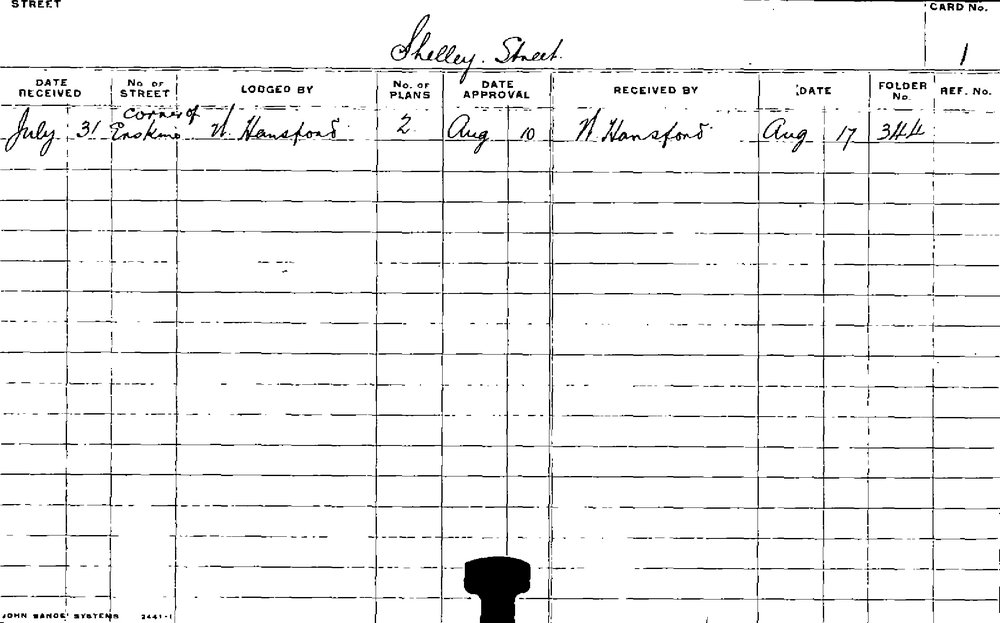 STREET
CARD No.
Shelley. Street.
1
DATE RECEIVED
No. OF STREET
LODGED BY
No. OF PLANS
DATE APPROVAL
RECEIVED BY
DATE
FOLDER No.
REF. No.
July 31 corner of Erskine W. Hansford 2 Aug 10 W. Hansford Aug 17 344
JOHN SANDS' SYSTEMS 2441-1